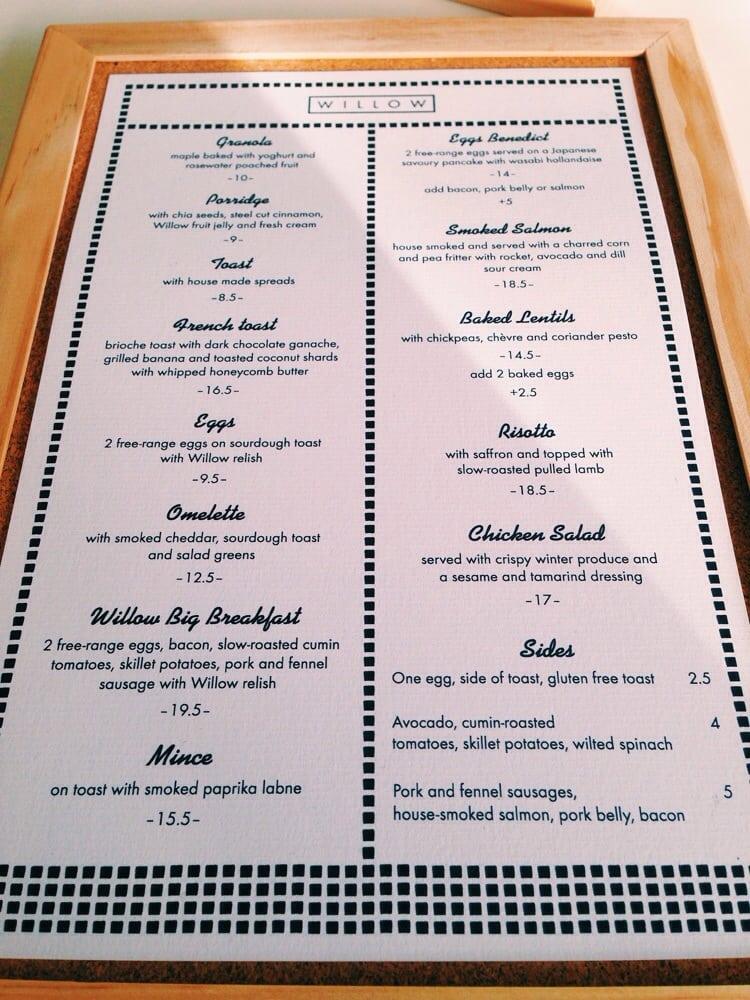 WILLOW
Granola
maple baked with yoghurt and
rosewater poached fruit
-10-
Porridge
with chia seeds, steel cut cinnamon,
Willow fruit jelly and fresh cream
-9-
Toast
with house made spreads
-8.5-
French toast
brioche toast with dark chocolate ganache,
grilled banana and toasted coconut shards
with whipped honeycomb butter
-16.5-
Eggs
2 free-range eggs on sourdough toast
with Willow relish
-9.5-
Omelette
with smoked cheddar, sourdough toast
and salad greens
-12.5-
Willow Big Breakfast
2 free-range eggs, bacon, slow-roasted cumin
tomatoes, skillet potatoes, pork and fennel
sausage with Willow relish
-19.5-
Mince
on toast with smoked paprika labne
-15.5-
Eggs Benedict
2 free-range eggs served on a Japanese
savoury pancake with wasabi hollandaise
-14-
add bacon, pork belly or salmon
+5
Smoked Salmon
house smoked and served with a charred corn
and pea fritter with rocket, avocado and dill
sour cream
-18.5-
Baked Lentils
with chickpeas, chèvre and coriander pesto
-14.5-
add 2 baked eggs
+2.5
Risotto
with saffron and topped with
slow-roasted pulled lamb
-18.5-
Chicken Salad
served with crispy winter produce and
a sesame and tamarind dressing
-17-
Sides
One egg, side of toast, gluten free toast 2.5
Avocado, cumin-roasted 4
tomatoes, skillet potatoes, wilted spinach
Pork and fennel sausages, 5
house-smoked salmon, pork belly, bacon